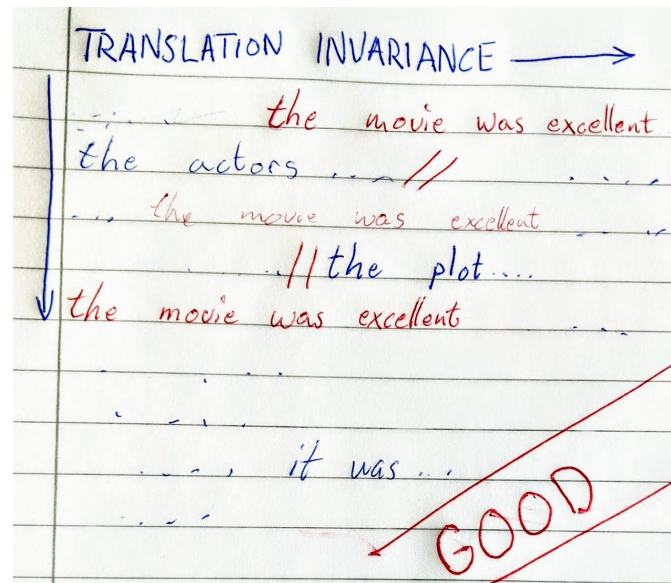 TRANSLATION INVARIANCE
the movie was excellent
the actors .... //
... the movie was excellent
.. // the plot ....
the movie was excellent
it was ...
GOOD